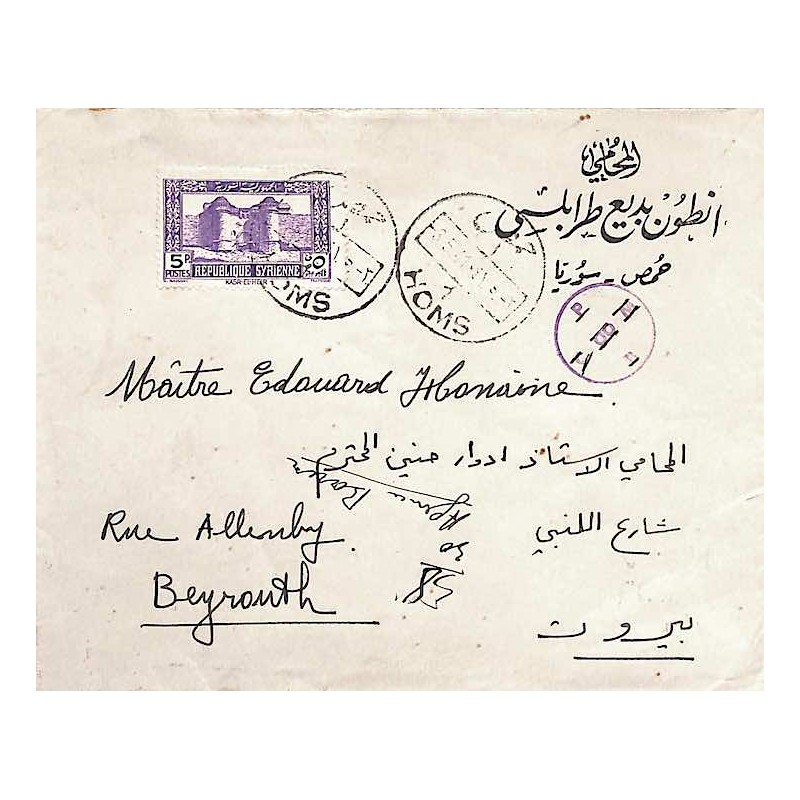 المحامي
انطون بديع طرابلسي
حمص - سوريا
الجمهورية السورية
5 P.
POSTES
REPUBLIQUE SYRIENNE
KASR-EL-HEIR
HOMS
HOMS
Maître Edouard Honaine
المحامي الاستاذ ادوار حنين المحترم
Rue Allenby.
شارع اللنبي
Beyrouth
بيروت